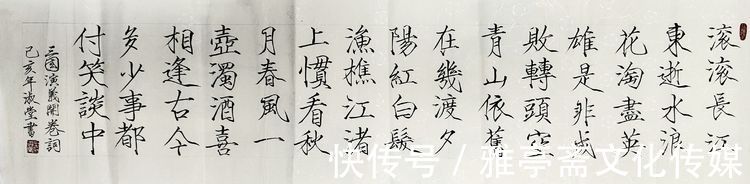 滚滚長江
東逝水浪
花淘盡英
雄是非成
敗轉頭空
青山依舊
在幾渡夕
陽紅白髮
漁樵江渚
上慣看秋
月春風一
壺濁酒喜
相逢古今
多少事都
付笑談中
三國演義開卷詞
己亥年淑堂書
快传号 / 雅亭斋文化传媒